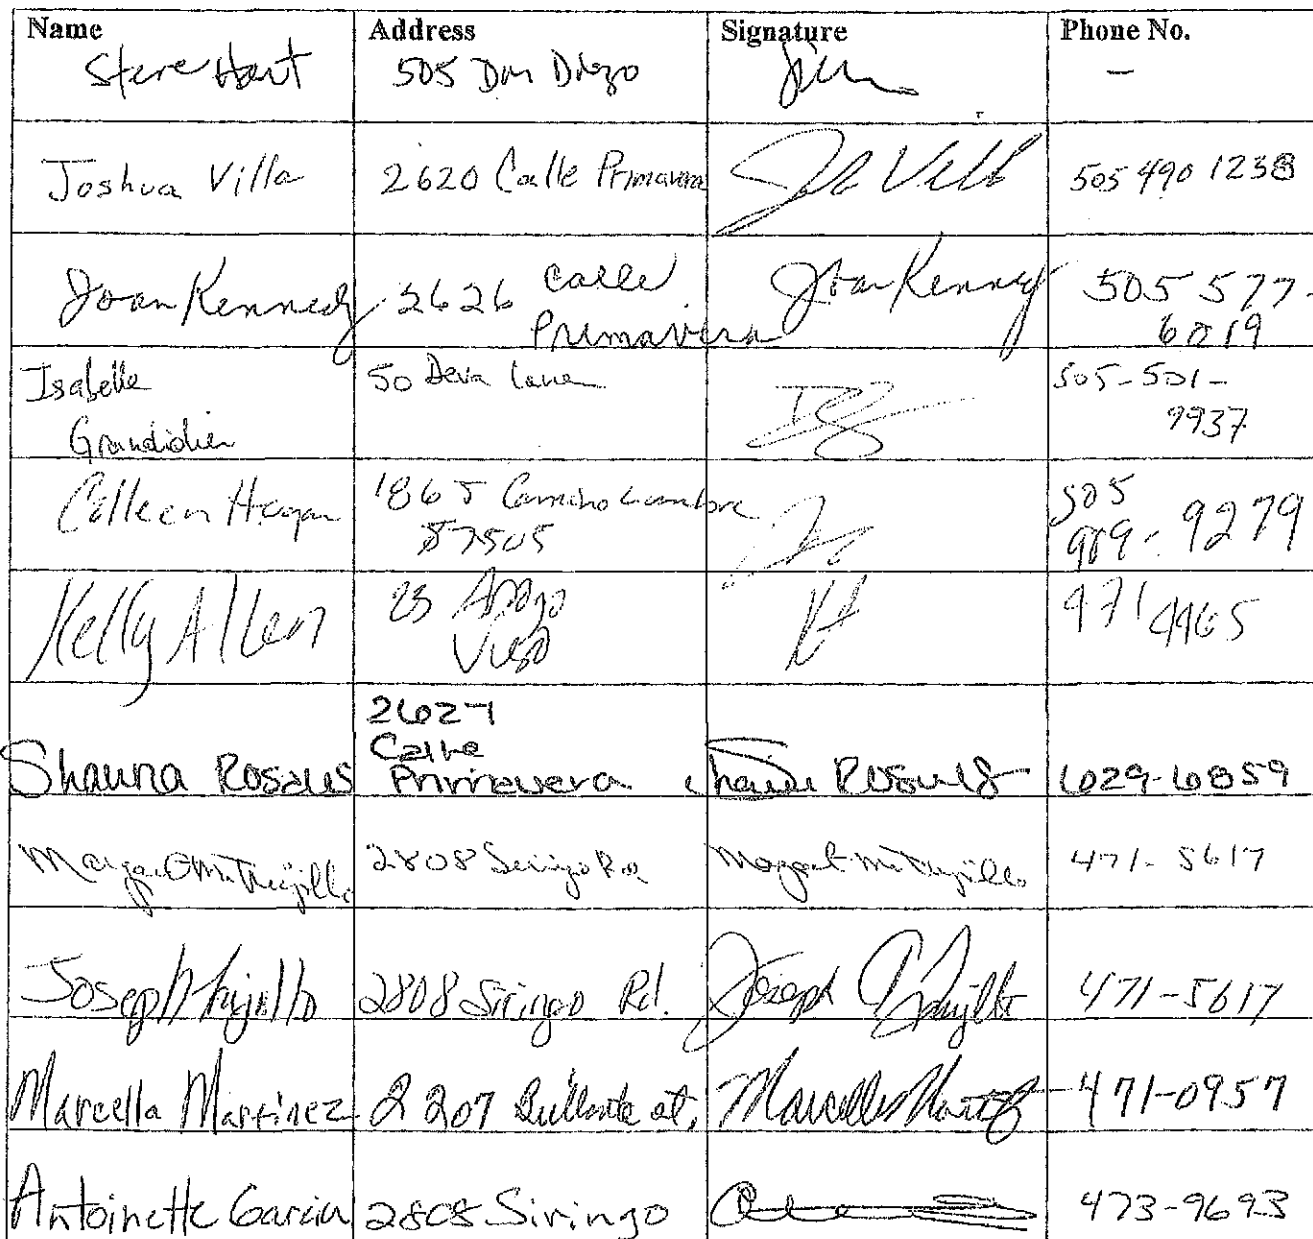 Name Address Signature Phone No.
Steve Hart 505 Don Diego –
Joshua Villa 2620 Calle Primavera Jo Villa 505 490 1238
Joan Kennedy 2626 Calle Joan Kennedy 505 577-
Primavera 6019
Isabelle 50 Deva Lane 505-501-
Grandidier 9937
Colleen Hagan 1865 Camino Lumbre 505
87505 989-9279
Kelly Allen 23 Arroyo 971 4465
Viejo
2627
Calle
Shauna Rosales Primavera Shauna Rosales 629-6859
Margaret M. Trujillo 2808 Siringo Rd Margaret M Trujillo 471-5617
Joseph Trujillo 2808 Siringo Rd. Joseph Trujillo 471-5617
Marcella Martinez 2207 Brillante st, Marcella Martinez 471-0957
Antoinette Garcia 2808 Siringo 473-9693